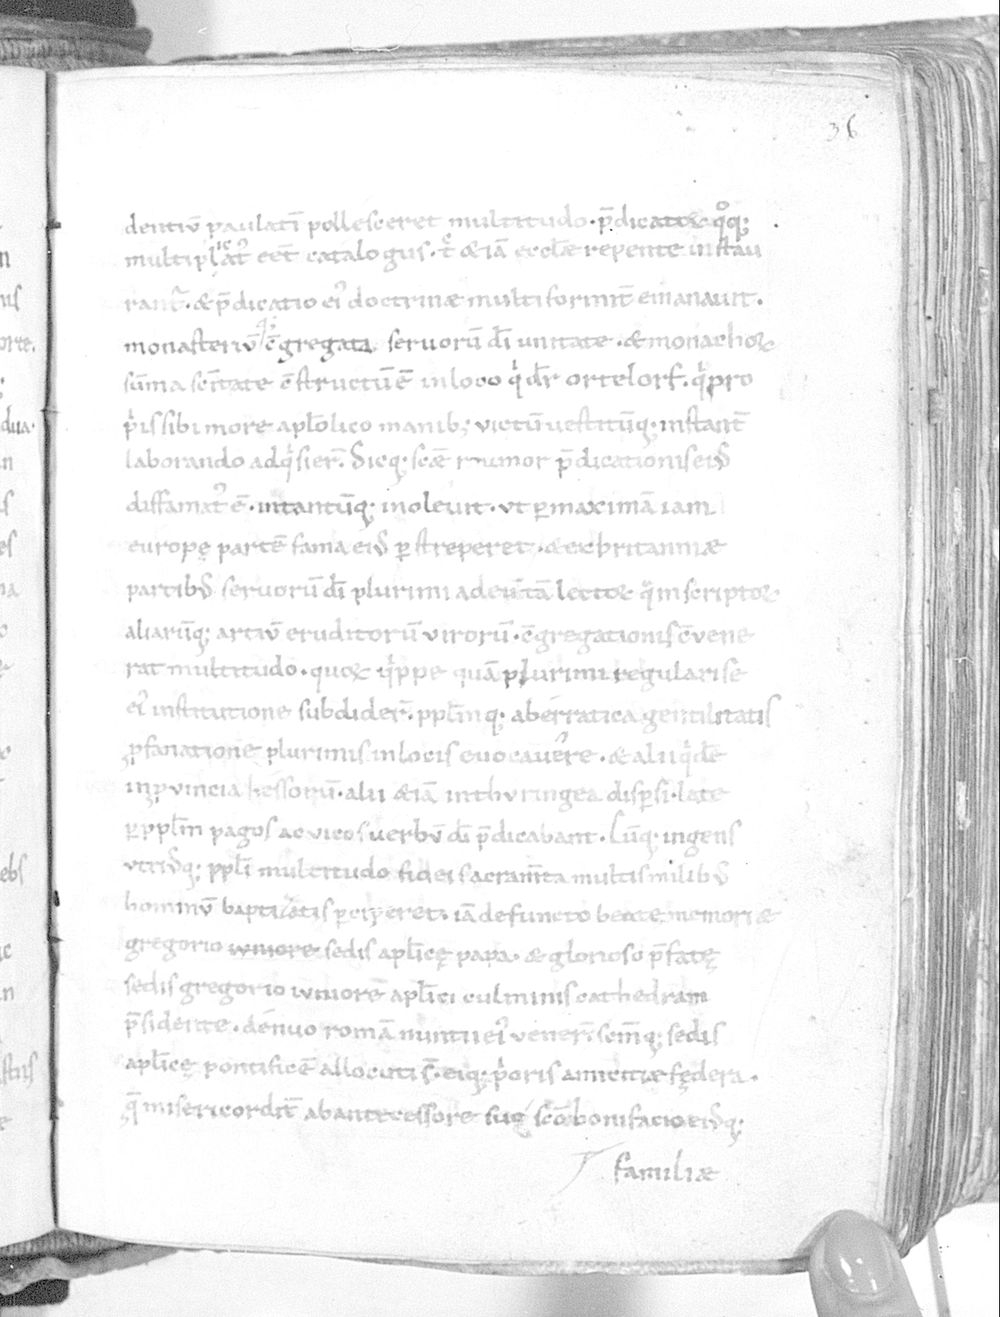 36
dentiū paulatī pollesceret multitudo · p̄dicatoꝝ qͦq;
multiplicat᷒ eēt catalogus · tc̄ & iā ecclæ repente instau
rant᷒ · & p̄dicatio ei᷒ doctrinæ multiformit̄ emanauit ·
monasteriū q; c̄gregata seruorū dī unitate · & monachoꝝ
sūma scītate c̄structū ē in loco qͥ dr̄ ortelorf · qͥ pro
pͥis sibi more aplōlico manib; victū uestitūq; instant̄
laborando adqͥsier̄ · Sicq; scæ rumor p̄dicationis ei᷒
diffamat᷒ ē · intantūq; inoleuit · ut ꝑ maximā iam
europę partē fama ei᷒ ꝑstreperet · & ex britanniæ
partib᷒ seruorū dī plurimi ad eū tā lectoꝝ quā scriptoꝝ
aliarūq; artiū eruditorū virorū · c̄gregationis c̄vene
rat multitudo · quoꝝ qͥppe quā plurimi regulari se
ei᷒ institutione subdider̄ · pplm̄q; ab erratica gentilitatis
ꝓfanatione plurimis in locis euocauere · & alii qͥdē
in ꝓuincia hessorū · alii & iā in thyringea dispersi · late
ꝑ pplm̄ pagos ac vicos uerbū dī p̄dicabant · Cūq; ingens
utri᷒q; ppli multitudo fidei sacram̄ta multis milib᷒
hominū baptizatis ꝑciperet · iā defuncto beate memoriæ
gregorio iuniore sedis aplicę papa · & glorioso p̄fatę
sedis gregorio iuniore aplici culminis cathedram
p̄sidente · denuo romā nuntii ei᷒ vener̄ · scm̄q; sedis
aplicę pontificē allocuti s̄ · eiq; pͥoris amicitiæ fędera ·
quę misericordit̄ ab antecessore suo sc̄o bonifacio ei᷒q;
familiæ